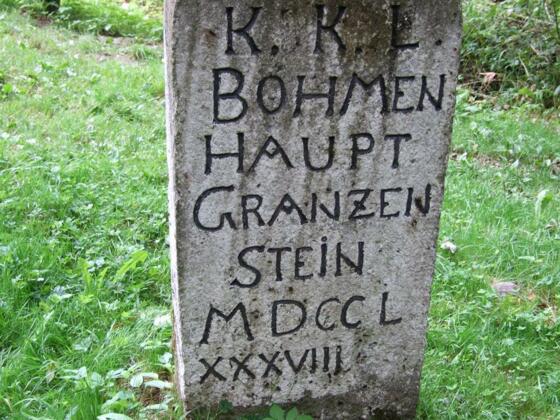 K. K. L.
BOHMEN
HAUPT
GRANZEN
STEIN
MDCCL
XXXVIIII